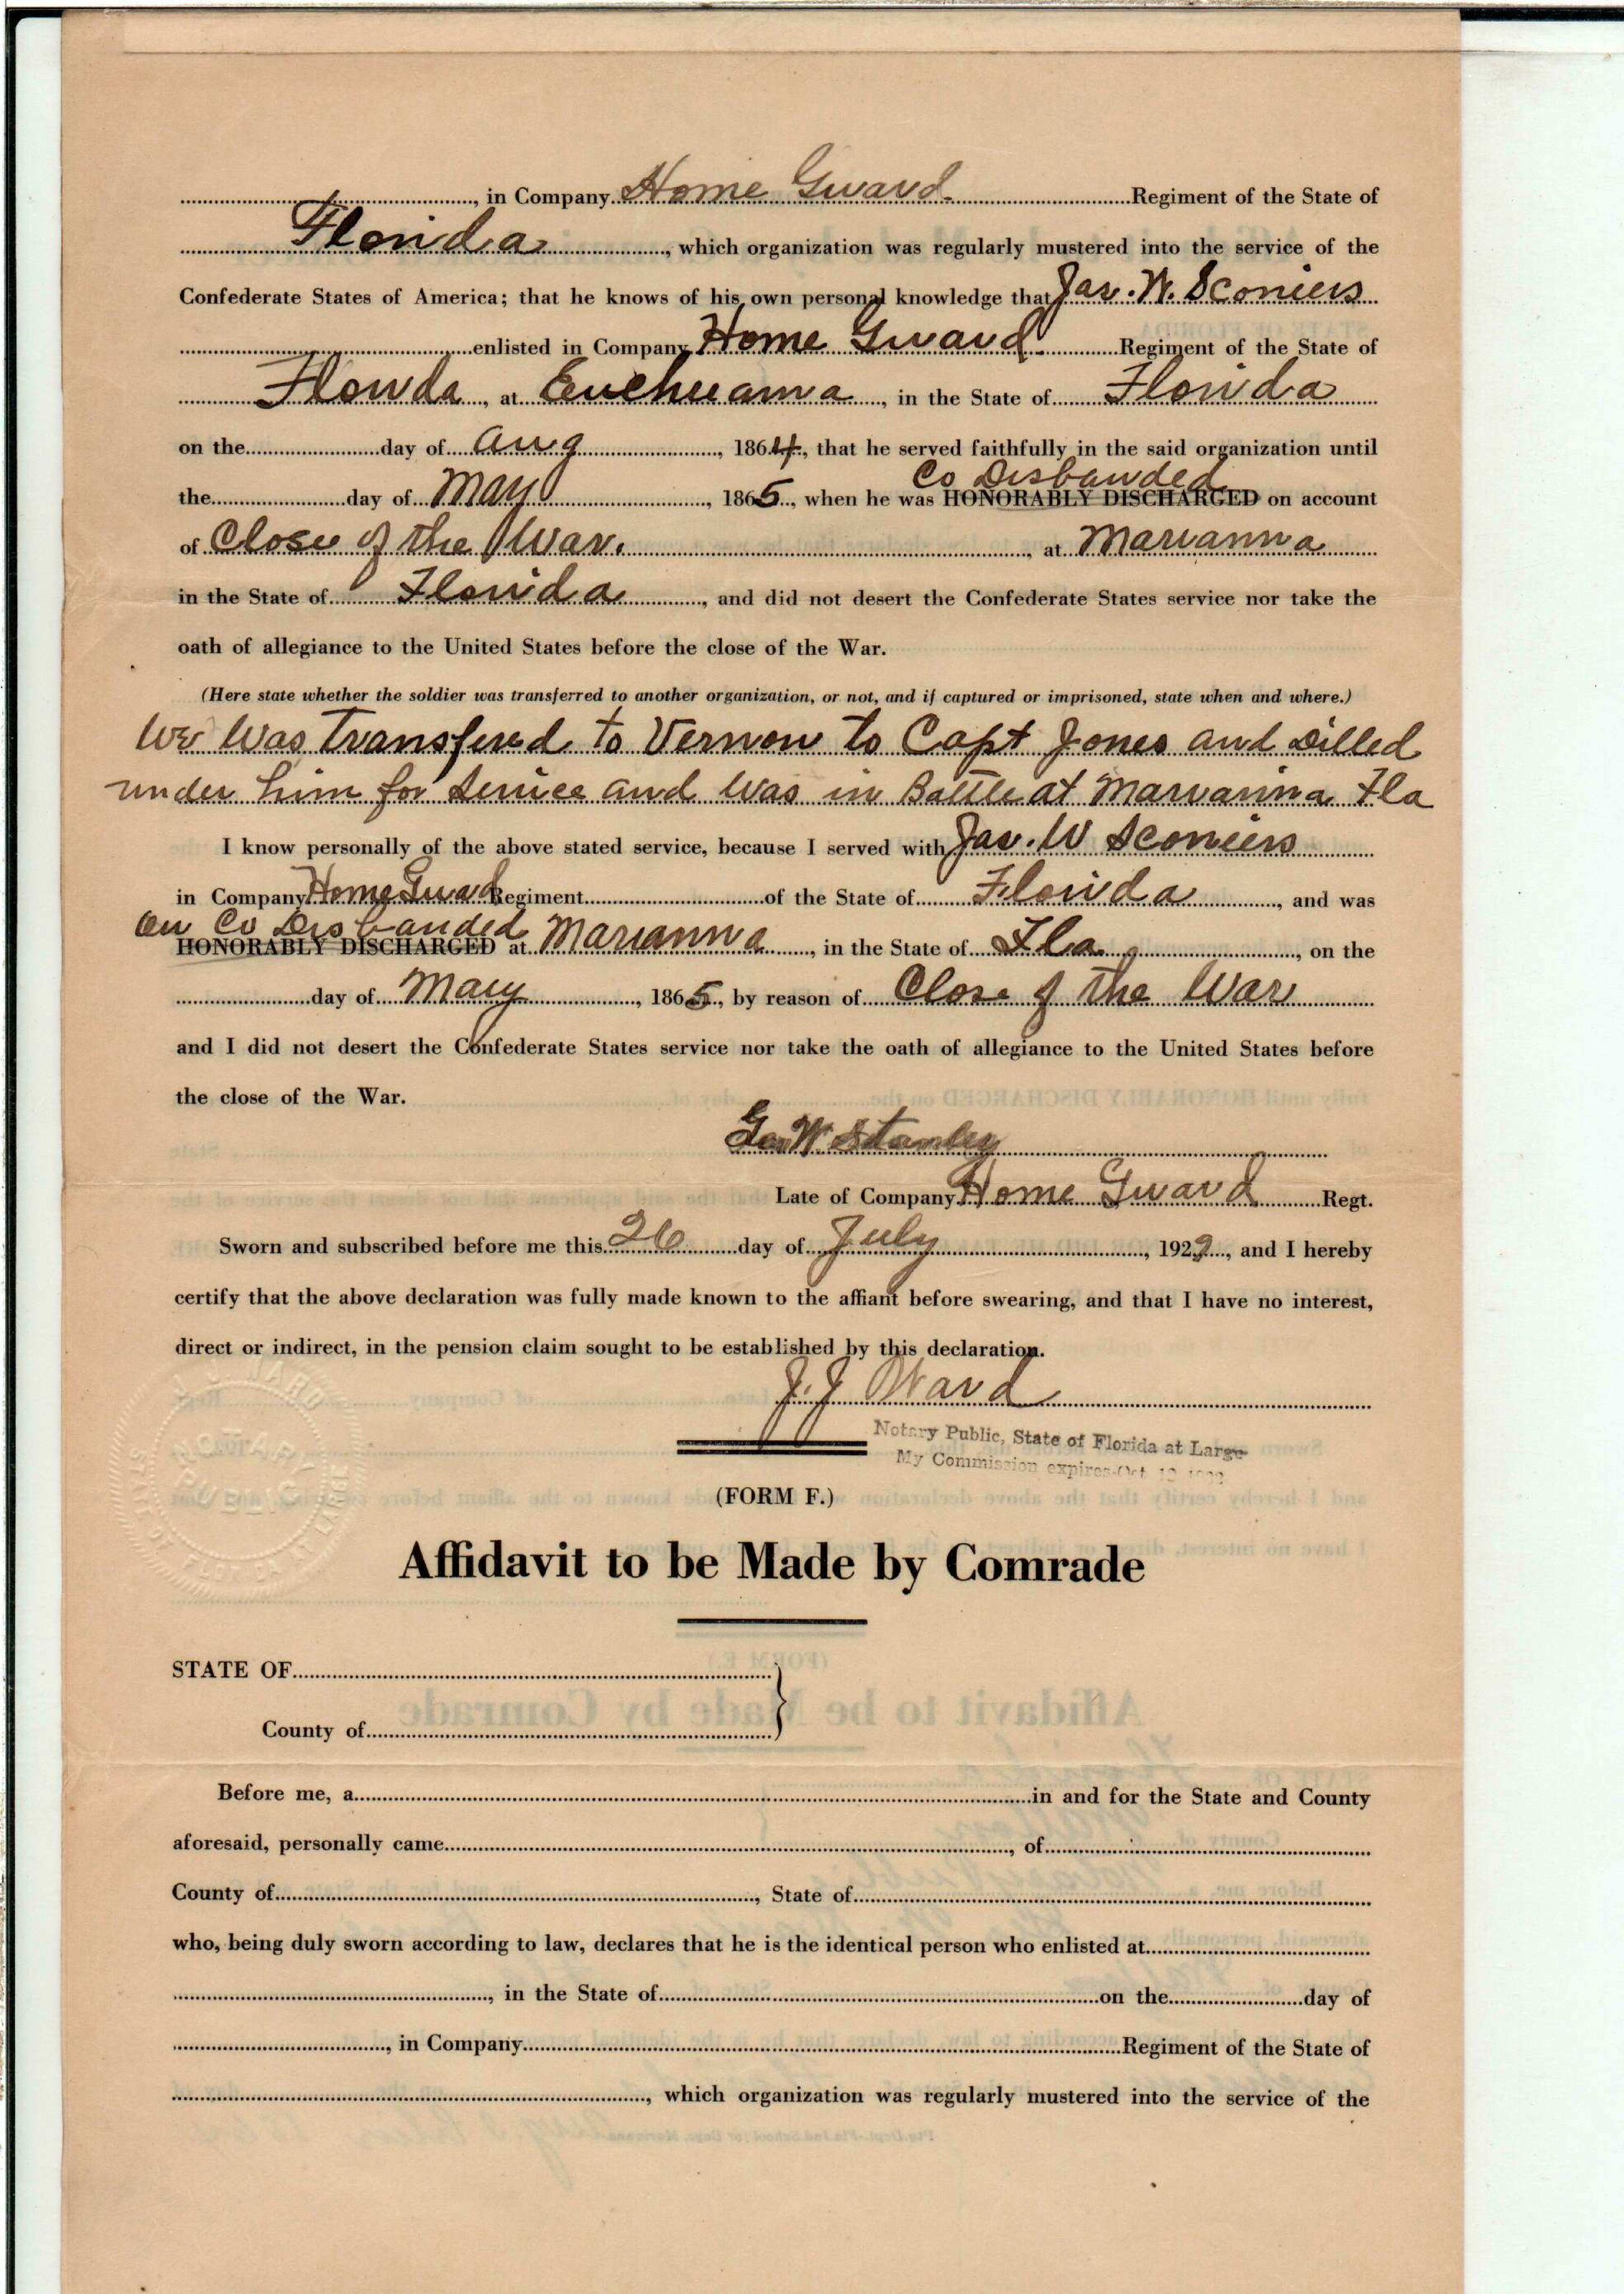 , in Company Home Guard Regiment of the State of
Florida, which organization was regularly mustered into the service of the
Confederate States of America; that he knows of his own personal knowledge that Jas. W. Sconiers
enlisted in Company Home Guard Regiment of the State of
Florida, at Euchuanna, in the State of Florida
on the day of Aug, 1864, that he served faithfully in the said organization until
Co Disbanded
the day of May, 1865, when he was HONORABLY DISCHARGED on account
of Close of the War., at Marianna
in the State of Florida, and did not desert the Confederate States service nor take the
oath of allegiance to the United States before the close of the War.
(Here state whether the soldier was transferred to another organization, or not, and if captured or imprisoned, state when and where.)
We Was Transfered to Vernon to Capt Jones and Dilled
under him for Service and Was in Battle at Marianna Fla
I know personally of the above stated service, because I served with Jas. W Sconiers
in Company Home Guard Regiment of the State of Florida, and was
on Co Disbanded
HONORABLY DISCHARGED at Marianna, in the State of Fla, on the
day of May, 1865, by reason of Close of the War
and I did not desert the Confederate States service nor take the oath of allegiance to the United States before
the close of the War.
Geo W. Stanley
Late of Company Home Guard Regt.
Sworn and subscribed before me this 26 day of July, 1922, and I hereby
certify that the above declaration was fully made known to the affiant before swearing, and that I have no interest,
direct or indirect, in the pension claim sought to be established by this declaration.
J. J Ward
Notary Public, State of Florida at Large
My Commission expires Oct. 12
(FORM F.)
Affidavit to be Made by Comrade
STATE OF
County of
Before me, a in and for the State and County
aforesaid, personally came, of
County of, State of
who, being duly sworn according to law, declares that he is the identical person who enlisted at
, in the State of on the day of
, in Company Regiment of the State of
, which organization was regularly mustered into the service of the